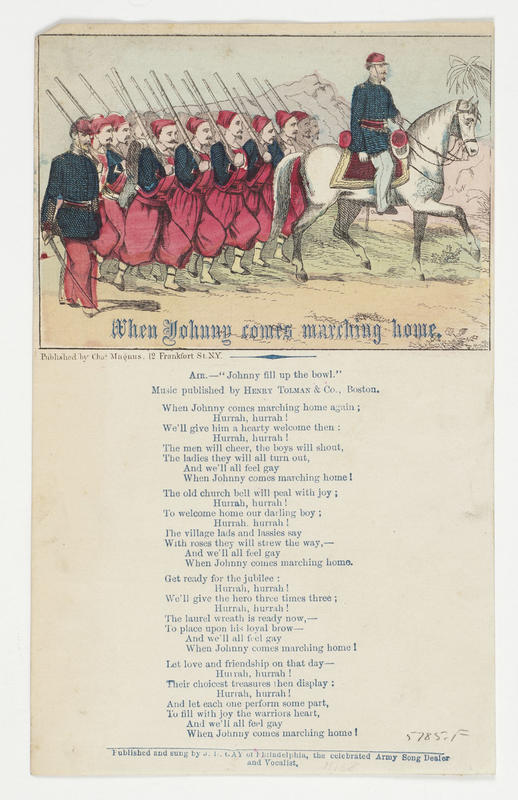 When Johnny comes marching home.
Published by Chas Magnus, 12 Frankfort St. N.Y.
AIR.—"Johnny fill up the bowl."
Music published by HENRY TOLMAN & Co., Boston.
When Johnny comes marching home again ;
Hurrah, hurrah !
We'll give him a hearty welcome then :
Hurrah, hurrah !
The men will cheer, the boys will shout,
The ladies they will all turn out,
And we'll all feel gay
When Johnny comes marching home !
The old church bell will peal with joy ;
Hurrah, hurrah !
To welcome home our darling boy ;
Hurrah, hurrah !
The village lads and lassies say
With roses they will strew the way,—
And we'll all feel gay
When Johnny comes marching home.
Get ready for the jubilee :
Hurrah, hurrah !
We'll give the hero three times three ;
Hurrah, hurrah !
The laurel wreath is ready now,—
To place upon his loyal brow—
And we'll all feel gay
When Johnny comes marching home !
Let love and friendship on that day—
Hurrah, hurrah !
Their choicest treasures then display :
Hurrah, hurrah !
And let each one perform some part,
To fill with joy the warriors heart,
And we'll all feel gay
When Johnny comes marching home !
5785.F
Published and sung by J. GAY of Philadelphia, the celebrated Army Song Dealer
and Vocalist.